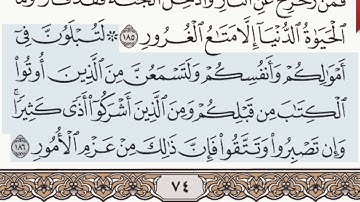 فَمَن زُحْزِحَ عَنِ ٱلنَّارِ وَأُدْخِلَ ٱلْجَنَّةَ فَقَدْ فَازَ وَمَا
ٱلْحَيَوٰةُ ٱلدُّنْيَآ إِلَّا مَتَٰعُ ٱلْغُرُورِ ١٨٥ ۞ لَتُبْلَوُنَّ فِىٓ
أَمْوَٰلِكُمْ وَأَنفُسِكُمْ وَلَتَسْمَعُنَّ مِنَ ٱلَّذِينَ أُوتُوا۟
ٱلْكِتَٰبَ مِن قَبْلِكُمْ وَمِنَ ٱلَّذِينَ أَشْرَكُوٓا۟ أَذًى كَثِيرًا ۚ
وَإِن تَصْبِرُوا۟ وَتَتَّقُوا۟ فَإِنَّ ذَٰلِكَ مِنْ عَزْمِ ٱلْأُمُورِ ١٨٦
٧٤